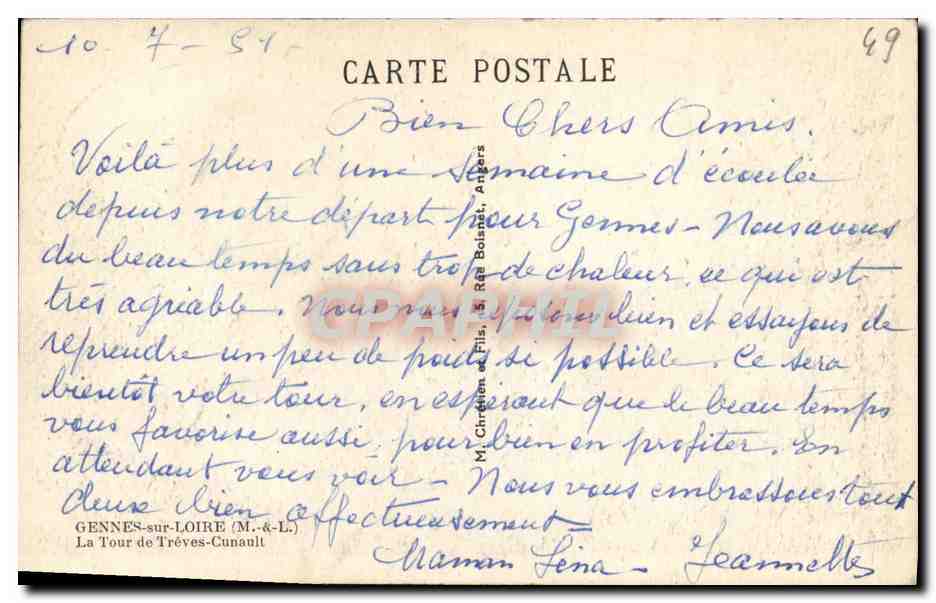 10-7-51-
49
CARTE POSTALE
Bien Chers Amis.
Voilà plus d'une semaine d'écoulée
depuis notre départ pour Gennes - Nous avons
du beau temps sans trop de chaleur, ce qui est
très agréable. Nous nous reposons bien et essayons de
reprendre un peu de poids si possible. Ce sera
bientôt votre tour, en espérant que le beau temps
vous favorise aussi, pour bien en profiter. En
attendant vous voir - Nous vous embrassons tout
deux bien affectueusement -
Maman Léna - Jeannette
GENNES-sur-LOIRE (M.-&-L.)
La Tour de Trêves-Cunault
M. Chrétien et Fils, 15, Rue Boisnet, Angers
CPAPHIL